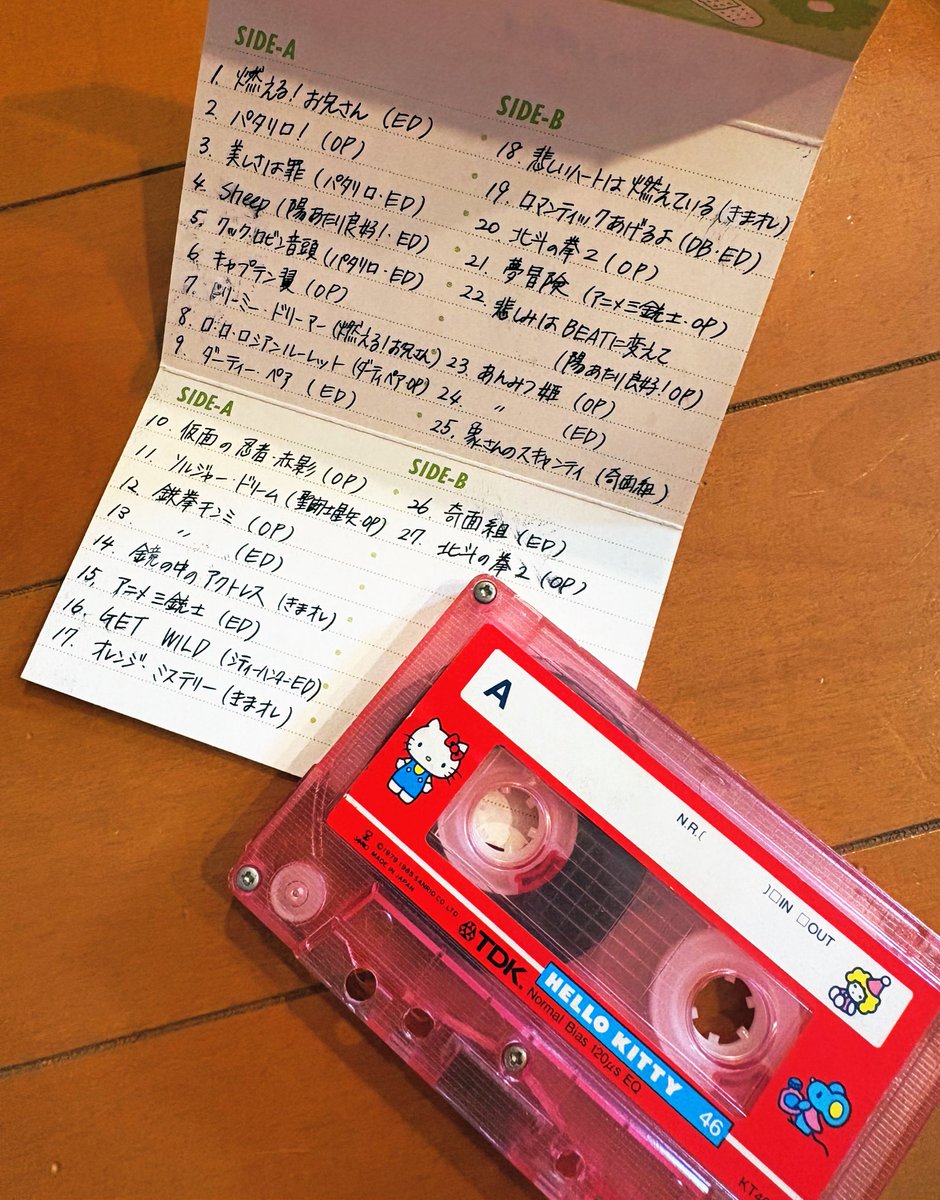 SIDE-A
1. 燃える!お兄さん (ED)
2 パタリロ! (OP)
3. 美しさは罪 (パタリロ・ED)
4. Sheep (陽あたり良好!・ED)
5. クック・ロビン音頭 (パタリロ・ED)
6. キャプテン翼 (OP)
7. ドリーミー・ドリーマー (燃える!お兄さん)
8. ロ・ロ・ロシアンルーレット (ダーティペアOP)
9. ダーティーペア (ED)
SIDE-B
18. 悲しいハートは燃えている (きまオレ)
19. ロマンティックあげるよ (DB・ED)
20. 北斗の拳2 (OP)
21. 夢冒険 (アニメ三銃士・OP)
22. 悲しみはBEATに変えて
(陽あたり良好!OP)
23. あんみつ姫 (OP)
24 〃 (ED)
25. 象さんのスキャンティ (奇面組)
SIDE-A
10. 仮面の忍者・赤影 (OP)
11. ソルジャードリーム (聖闘士星矢OP)
12. 鉄拳チンミ (OP)
13. 〃 (ED)
14. 鏡の中のアクトレス (きまオレ)
15. アニメ三銃士 (ED)
16. GET WILD (シティーハンターED)
17. オレンジ・ミステリー (きまオレ)
SIDE-B
26 奇面組 (ED)
27. 北斗の拳2 (OP)
A
N.R.(
)□IN □OUT
©1979,1985 SANRIO CO.,LTD.
MADE IN JAPAN
TDK
HELLO KITTY 46
Normal Bias 120μs EQ